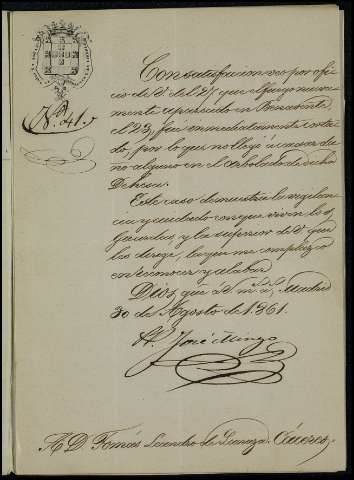 Con satisfaccion veo por ofi
cio de V. del 27, que el fuego nueva
mente aparecido en Benavente
el 23, fué inmediatamente corta
do, por lo que no llegó a causar da
ño alguno en el Arbolado de dicha
Dehesa.
Este caso demuestra la vigilan
cia y cuidado con que viven los
Guardas, y la superior de V. que
los dirige, lo que me complazco
en reconocer y alabar.
Dios gue á V. m. a. Madrid
30 de Agosto de 1861.
José Mingo
Nº 41.
A D. Tomás Leandro de Cáceres.